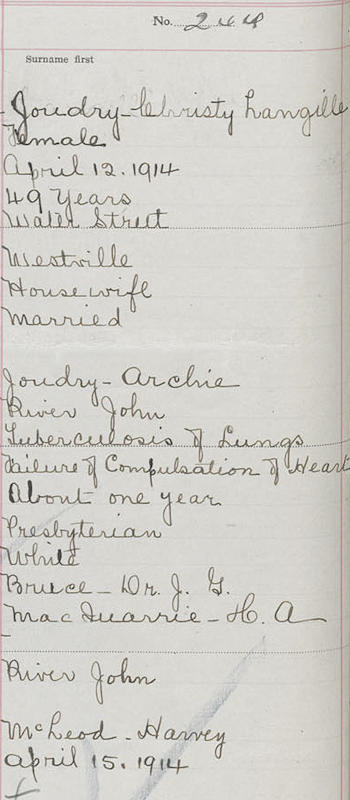 No. 244
Surname first
Joudry - Christy Langille
Female
April 12. 1914
49 Years
Water Street
Westville
Housewife
Married
Joudry - Archie
River John
Tuberculosis of Lungs
Failure of Compulsation of Heart
About one year
Presbyterian
White
Bruce - Dr. J. G.
MacQuarrie - H. A
River John
McLeod - Harvey
April 15. 1914